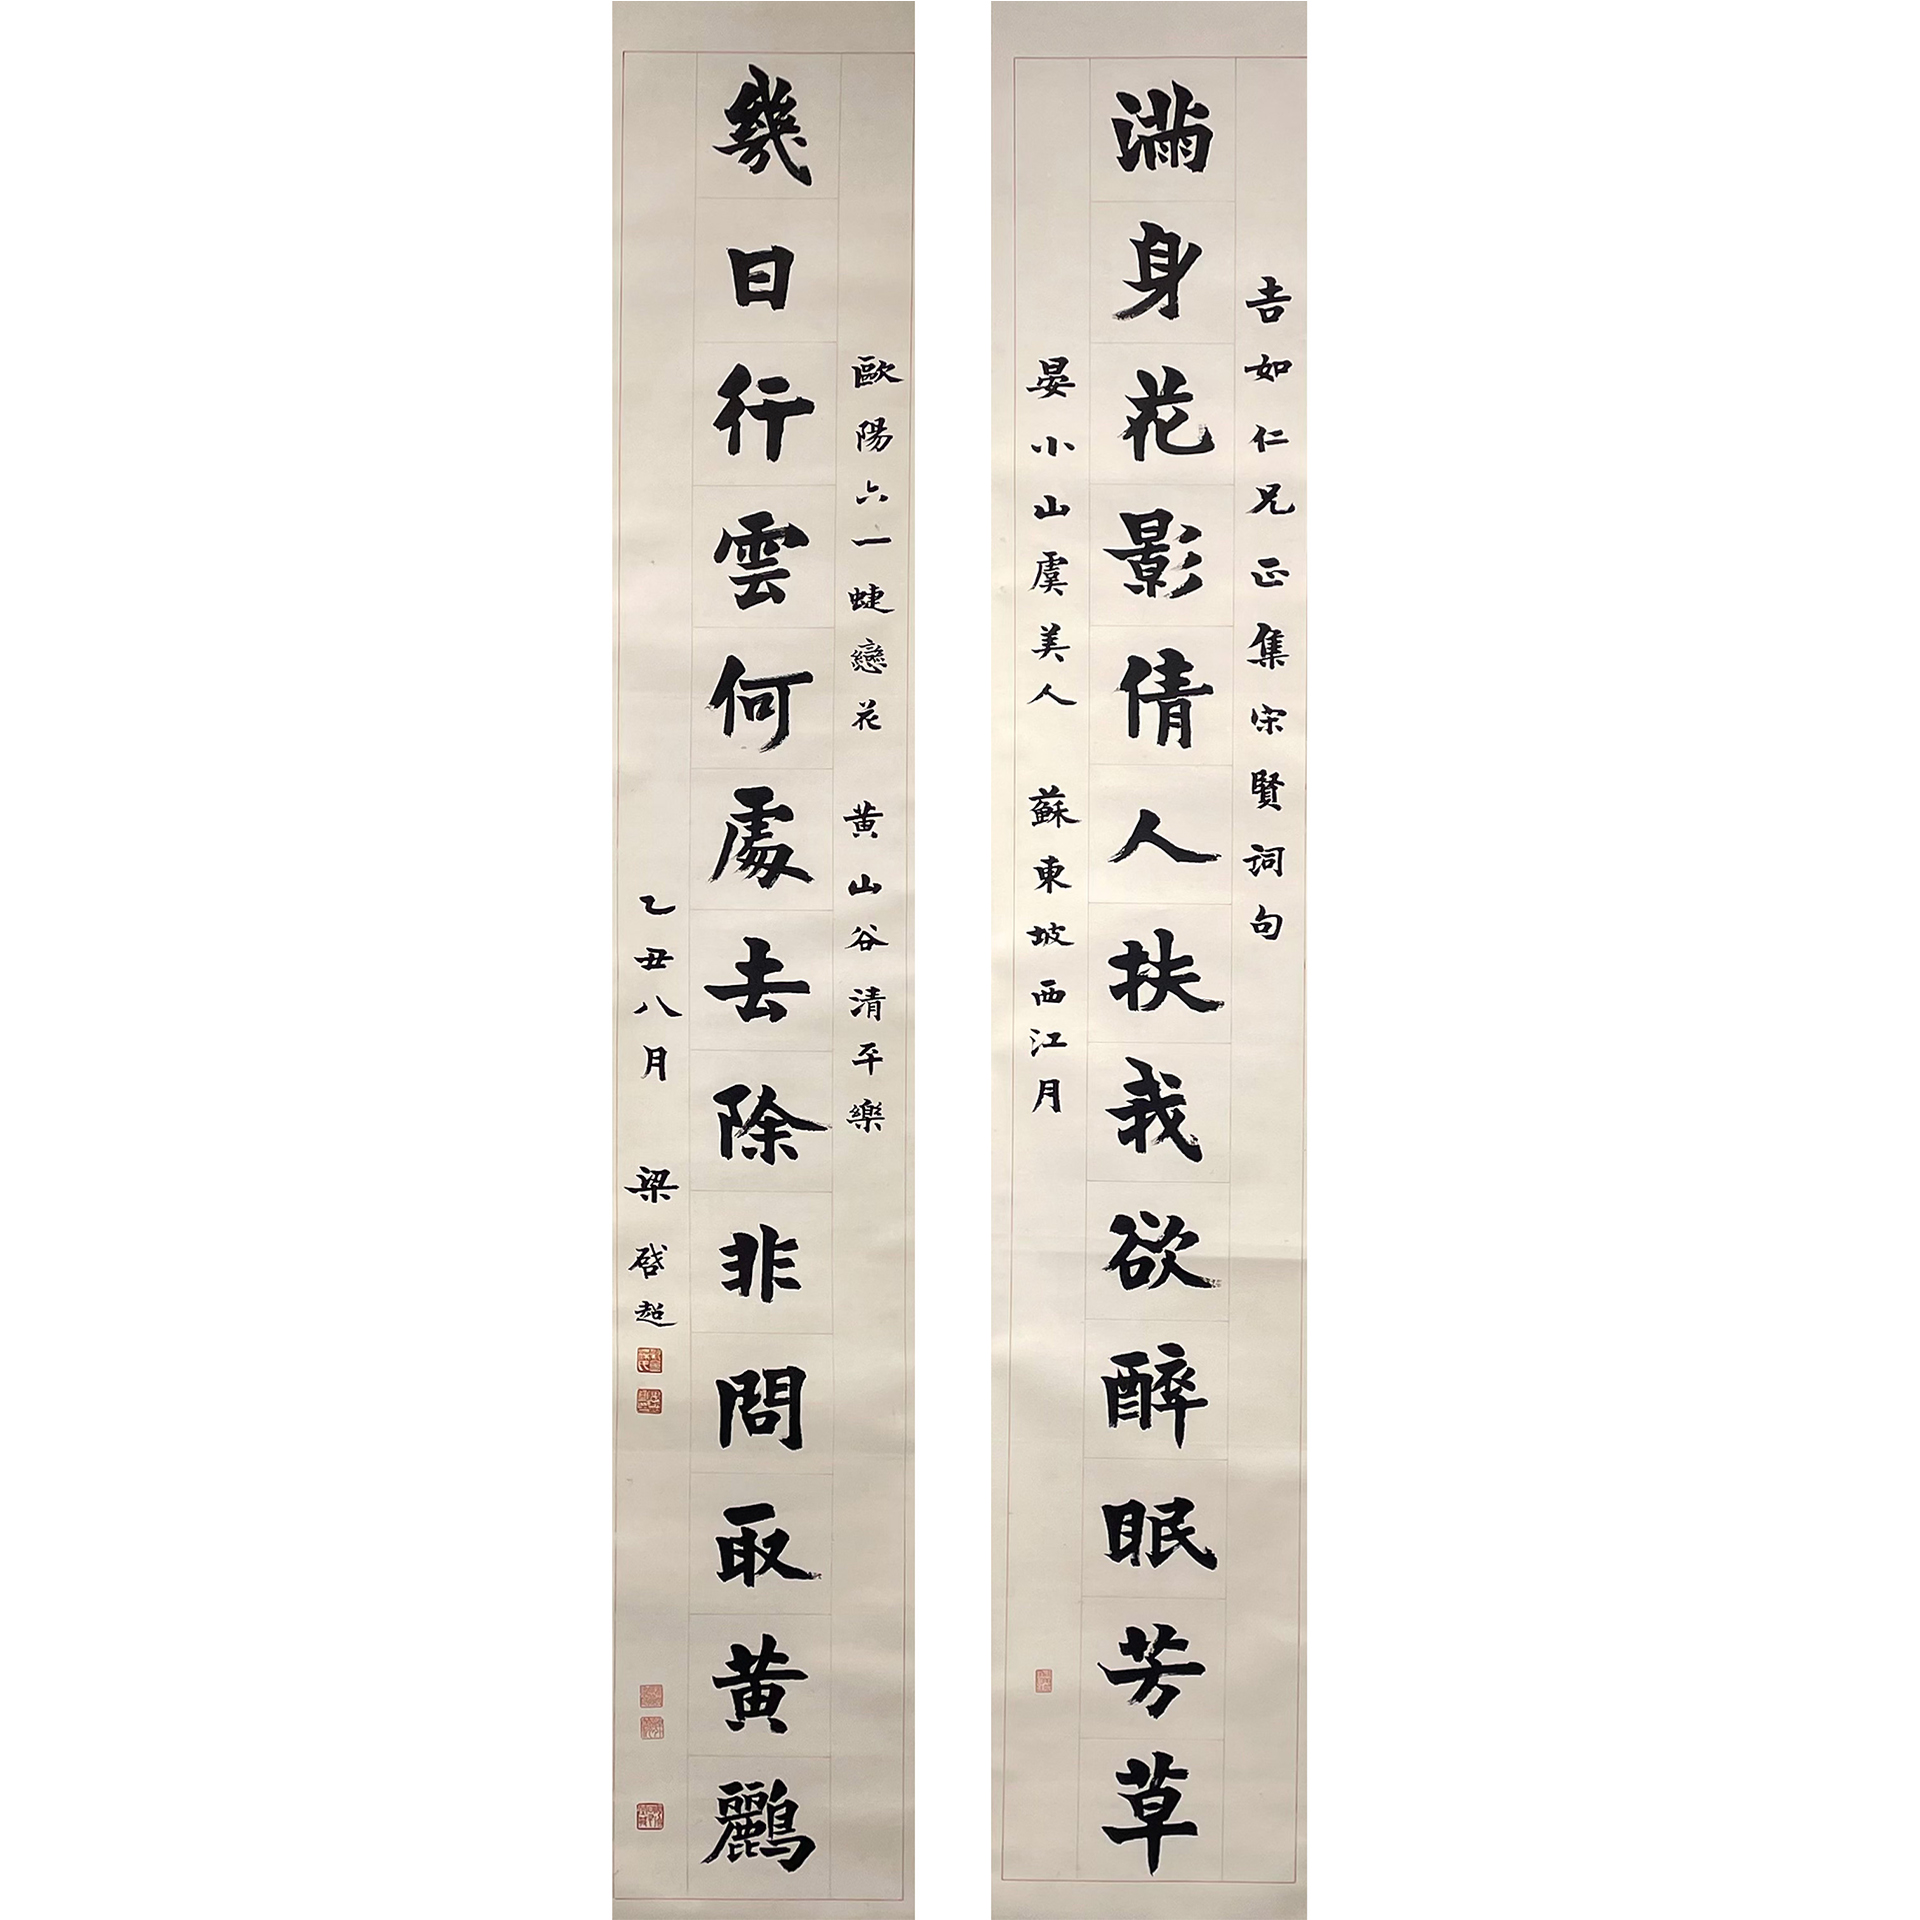 吉如仁兄正集宋賢詞句
滿身花影倩人扶我欲醉眠芳草
晏小山虞美人 蘇東坡西江月
歐陽六一蜨戀花 黃山谷清平樂
幾日行雲何處去除非問取黃鸝
乙丑八月 梁啓超